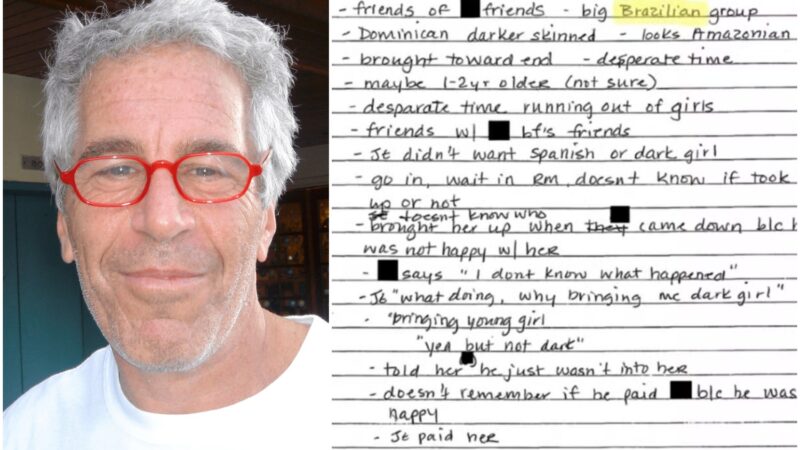 - friends of friends - big Brazilian group
- Dominican darker skinned - looks Amazonian
- brought toward end - desperate time
- maybe 1-2yr older (not sure)
- desparate time running out of girls
- friends w/ bf's friends
- Je didn't want Spanish or dark girl
- go in, wait in rm, doesnt know if took
up or not
Je doesnt know who
- brought her up when they came down b/c
was not happy w/ her
- says "I dont know what happened"
- Je "what doing, why bringing me dark girl"
- "bringing young girl
"yea but not dark"
- told her he just wasn't into her
- doesn't remember if he paid b/c he was
happy
- Je paid her